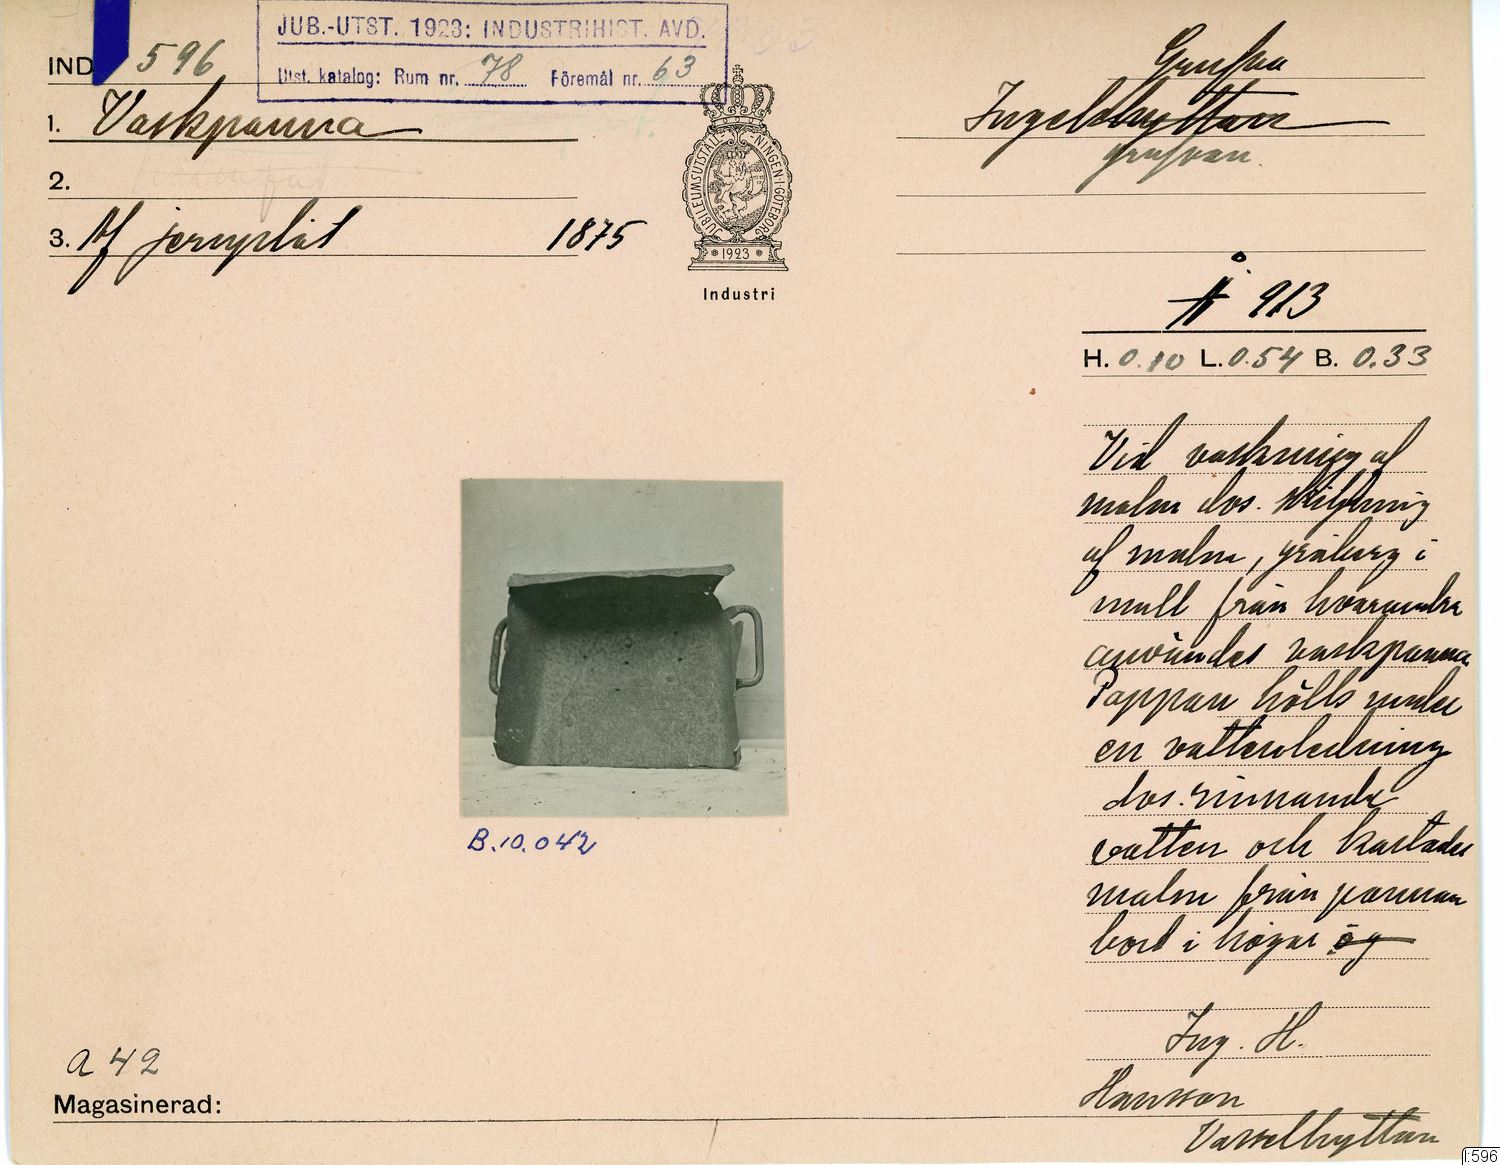 JUB.-UTST. 1923: INDUSTRIHIST. AVD.
Utst. katalog: Rum nr. 78 Föremål nr. 63
IND 596
1. Vaskpanna
2.
3. Af jernplåt 1875
JUBILEUMSUTSTÄLLNINGEN I GÖTEBORG
1923
Industri
Grufva
Ingelshyttan
grufvan.
Å 913
H. 0.10 L. 0.54 B. 0.33
Vid vaskning af
malm dvs. skiljning
af malm, gråberg i
mull från hvarandra
användes vaskpanna
Pappan hölls under
en vattenledning
dvs. rinnande
vatten och kastades
malm från pannan
bort i högar
Ing. H.
Hansson
Vasselhyttan
B.10.042
a 42
Magasinerad:
I:596